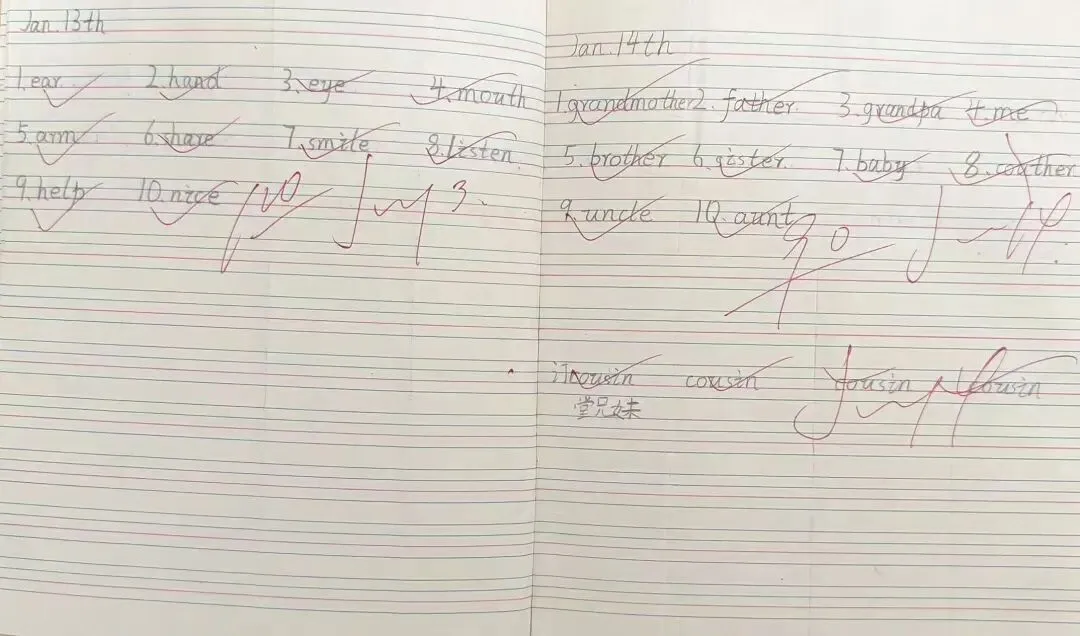 Jan.13th
1.ear 2.hand 3.eye 4.mouth
5.arm 6.share 7.smile 8.listen
9.help 10.nice
Jan.14th
1.grandmother 2.father 3.grandpa 4.me
5.brother 6.sister 7.baby 8.couther
9.uncle 10.aunt
90
订 cousin cousin cousin cousin
堂兄妹